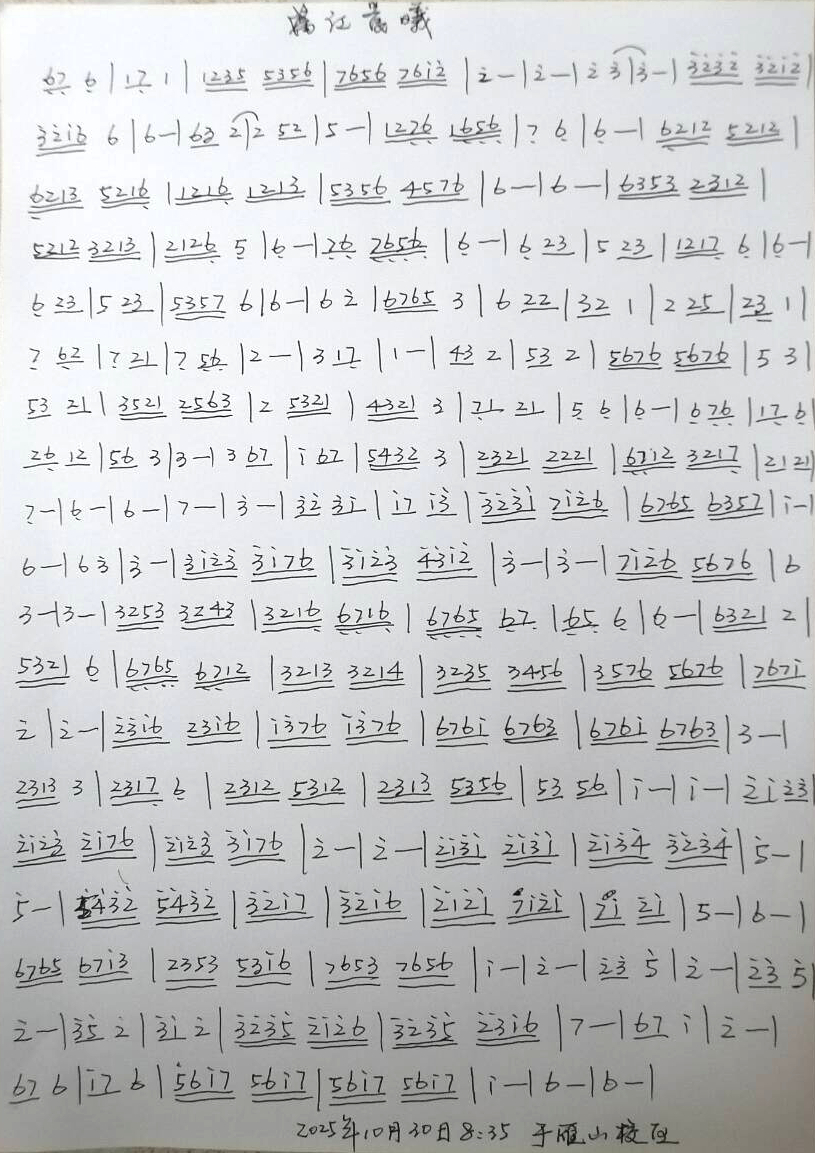 江晨曦
67 6 | 17 1 | 1235 5356 | 7656 7612 | 2 — | 2 — | 2 3 | 3 — | 3232 3212 |
3216 6 | 6 — | 63 2 | 2 52 | 5 — | 1276 1656 | 7 6 | 6 — | 6212 5212 |
6213 5216 | 1216 1213 | 5356 4576 | 6 — | 6 — | 6353 2312 |
5212 3213 | 2126 5 | 6 — | 76 7656 | 6 — | 6 23 | 5 23 | 1217 6 | 6 — |
6 23 | 5 23 | 5357 6 | 6 — | 6 2 | 6765 3 | 6 22 | 32 1 | 2 25 | 23 1 |
7 67 | 7 21 | 7 56 | 2 — | 3 17 | 1 — | 43 2 | 53 2 | 5676 5676 | 5 3 |
53 21 | 3521 2563 | 2 5321 | 4321 3 | 71 21 | 5 6 | 6 — | 6 76 | 17 6 |
26 12 | 56 3 | 3 — | 3 67 | i 67 | 5432 3 | 2321 2221 | 6712 3217 | 2121
7 — | 6 — | 6 — | 7 — | 3 — | 32 31 | 17 13 | 3231 7126 | 6765 6357 | i — |
6 — | 6 3 | 3 — | 3123 3176 | 3123 4312 | 3 — | 3 — | 7126 5676 | 6
3 — | 3 — | 3253 3243 | 3216 6716 | 6765 67 | 65 6 | 6 — | 6321 2 |
5321 6 | 6765 6712 | 3213 3214 | 3235 3456 | 3576 5676 | 7671
2 | 2 — | 2316 2316 | 1376 1376 | 6761 6763 | 6761 6763 | 3 — |
2313 3 | 2317 6 | 2312 5312 | 2313 5356 | 53 56 | i — | i — | 21 23 |
2123 2176 | 2123 3176 | 2 — | 2 — | 2131 2131 | 2134 3234 | 5 — |
5 — | 5432 5432 | 3217 | 3216 | 2121 7121 | 71 21 | 5 — | 6 — |
6765 6713 | 2353 5316 | 7653 7656 | i — | 2 — | 23 5 | 2 — | 23 5 |
2 — | 35 2 | 31 2 | 3235 2126 | 3235 2316 | 7 — | 67 i | 2 — |
67 6 | 17 6 | 5617 5617 | 5617 5617 | i — | 6 — | 6 — |
2025年10月30日8:35 于雁山校区